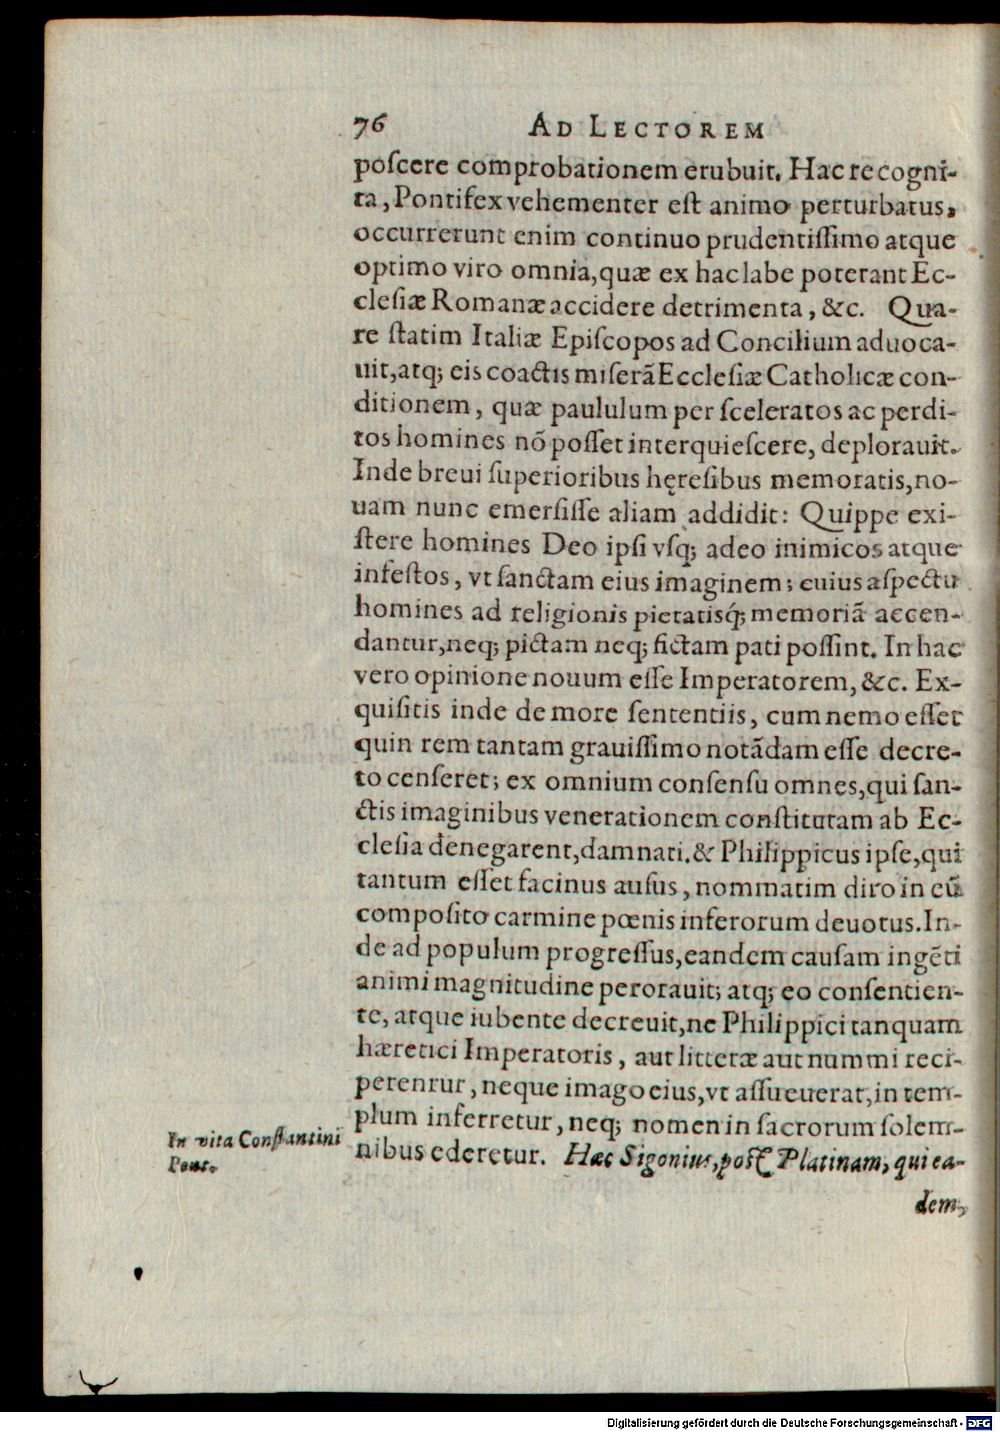 76 AD LECTOREM
poſcere comprobationem erubuit. Hac recogni-
ta, Pontifex vehementer eſt animo perturbatus,
occurrerunt enim continuo prudentiſſimo atque
optimo viro omnia, quæ ex hac labe poterant Ec-
cleſiæ Romanæ accidere detrimenta, &c. Qua-
re ſtatim Italiæ Epiſcopos ad Concilium aduoca-
uit, atq; eis coactis miſerã Eccleſiæ Catholicæ con-
ditionem, quæ paululum per ſceleratos ac perdi-
tos homines nõ poſſet interquieſcere, deplorauit.
Inde breui ſuperioribus hęreſibus memoratis, no-
uam nunc emerſiſſe aliam addidit: Quippe exi-
ſtere homines Deo ipſi vſq; adeo inimicos atque
infeſtos, vt ſanctam eius imaginem; cuius aſpectu
homines ad religionis pietatisq́; memoriã accen-
dantur, neq; pictam neq; fictam pati poſſint. In hac
vero opinione nouum eſſe Imperatorem, &c. Ex-
quiſitis inde de more ſententiis, cum nemo eſſet
quin rem tantam grauiſſimo notãdam eſſe decre-
to cenſeret; ex omnium conſenſu omnes, qui ſan-
ctis imaginibus venerationem conſtitutam ab Ec-
cleſia denegarent, damnati. & Philippicus ipſe, qui
tantum eſſet facinus auſus, nominatim diro in eũ
compoſito carmine pœnis inferorum deuotus. In-
de ad populum progreſſus, eandem cauſam ingẽti
animi magnitudine perorauit; atq; eo conſentien-
te, atque iubente decreuit, ne Philippici tanquam
hæretici Imperatoris, aut litteræ aut nummi reci-
perentur, neque imago eius, vt aſſueuerat, in tem-
plum inferretur, neq; nomen in ſacrorum ſolem-
nibus ederetur. Hæc Sigonius, poſt Platinam, qui ea-
In vita Conſtantini
Pont.
dem,
Digitalisierung gefördert durch die Deutsche Forschungsgemeinschaft - DFG